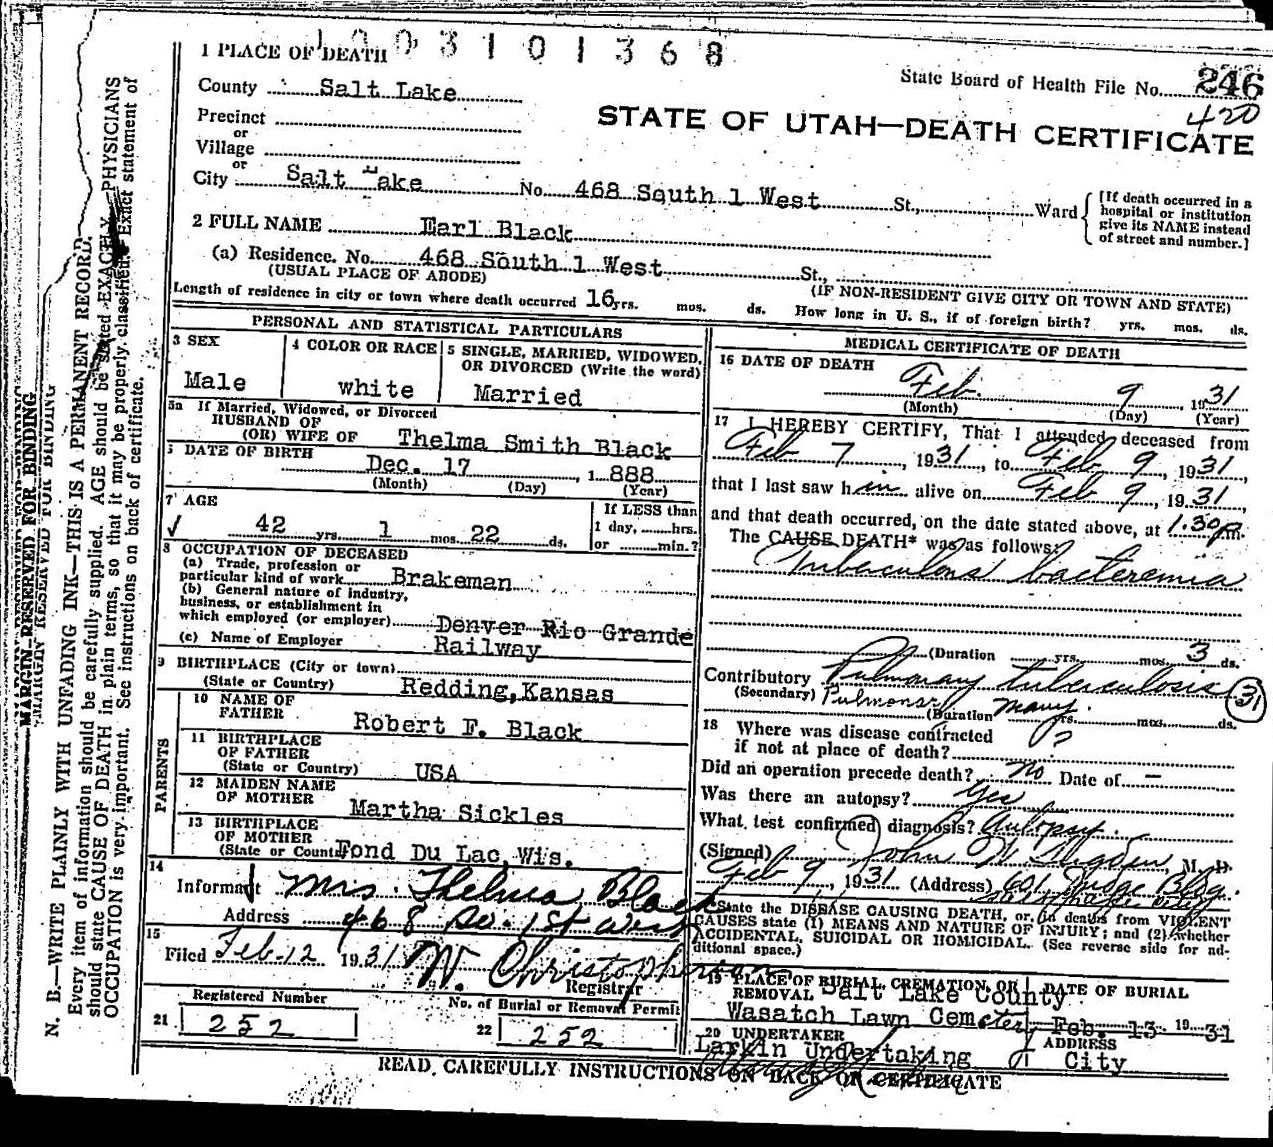 1003101368
1 PLACE OF DEATH
State Board of Health File No. 246
420
County Salt Lake
STATE OF UTAH—DEATH CERTIFICATE
Precinct
or
Village
or
City Salt Lake No. 468 South 1 West St., Ward
[If death occurred in a
hospital or institution
give its NAME instead
of street and number.]
2 FULL NAME Earl Black
(a) Residence. No. 468 South 1 West St.,
(USUAL PLACE OF ABODE) (IF NON-RESIDENT GIVE CITY OR TOWN AND STATE)
Length of residence in city or town where death occurred 16 yrs. mos. ds. How long in U. S., if of foreign birth? yrs. mos. ds.
PERSONAL AND STATISTICAL PARTICULARS
3 SEX
Male
4 COLOR OR RACE
white
5 SINGLE, MARRIED, WIDOWED,
OR DIVORCED (Write the word)
Married
5a If Married, Widowed, or Divorced
HUSBAND OF
(OR) WIFE OF Thelma Smith Black
DATE OF BIRTH
Dec. 17, 1888
(Month) (Day) (Year)
7 AGE
42 yrs. 1 mos. 22 ds.
If LESS than
1 day, hrs.
or min.?
8 OCCUPATION OF DECEASED
(a) Trade, profession or
particular kind of work Brakeman
(b) General nature of industry,
business, or establishment in
which employed (or employer) Denver Rio Grande
(c) Name of Employer Railway
9 BIRTHPLACE (City or town)
(State or Country) Redding, Kansas
PARENTS
10 NAME OF
FATHER Robert F. Black
11 BIRTHPLACE
OF FATHER
(State or Country) USA
12 MAIDEN NAME
OF MOTHER Martha Sickles
13 BIRTHPLACE
OF MOTHER
(State or Country) Fond Du Lac, Wis.
14
Informant Mrs. Thelma Black
Address 468 So. 1st West
15
Filed Feb-12 1931 W. Christopherson
Registrar
Registered Number
21 252
No. of Burial or Removal Permit
22 252
MEDICAL CERTIFICATE OF DEATH
16 DATE OF DEATH
Feb. 9 1931
(Month) (Day) (Year)
17 I HEREBY CERTIFY, That I attended deceased from
Feb 7, 1931, to Feb 9, 1931,
that I last saw him alive on Feb 9, 1931,
and that death occurred, on the date stated above, at 1.30 p.m.
The CAUSE DEATH* was as follows:
Tuberculous bacteremia
(Duration yrs. mos. 3 ds.
Contributory Pulmonary tuberculosis 31
(Secondary) Pulmonary (Duration many yrs. mos. ds.
18 Where was disease contracted
if not at place of death? ?
Did an operation precede death? No Date of —
Was there an autopsy? Yes
What test confirmed diagnosis? Autopsy.
(Signed) John W. M. D.
Feb 9, 1931 (Address) 601 Judge Bldg.
*State the DISEASE CAUSING DEATH, or, in deaths from VIOLENT
CAUSES state (1) MEANS AND NATURE OF INJURY; and (2) whether
ACCIDENTAL, SUICIDAL OR HOMICIDAL. (See reverse side for ad-
ditional space.)
19 PLACE OF BURIAL, CREMATION, OR
REMOVAL Salt Lake County
Wasatch Lawn Cemetery
DATE OF BURIAL
Feb. 13 1931
20 UNDERTAKER
Larkin Undertaking
ADDRESS
City
READ CAREFULLY INSTRUCTIONS ON BACK OF CERTIFICATE
MARGIN RESERVED FOR BINDING
N. B.—WRITE PLAINLY WITH UNFADING INK—THIS IS A PERMANENT RECORD.
Every item of information should be carefully supplied. AGE should be stated EXACTLY. PHYSICIANS
should state CAUSE OF DEATH in plain terms, so that it may be properly classified. Exact statement of
OCCUPATION is very important. See instructions on back of certificate.